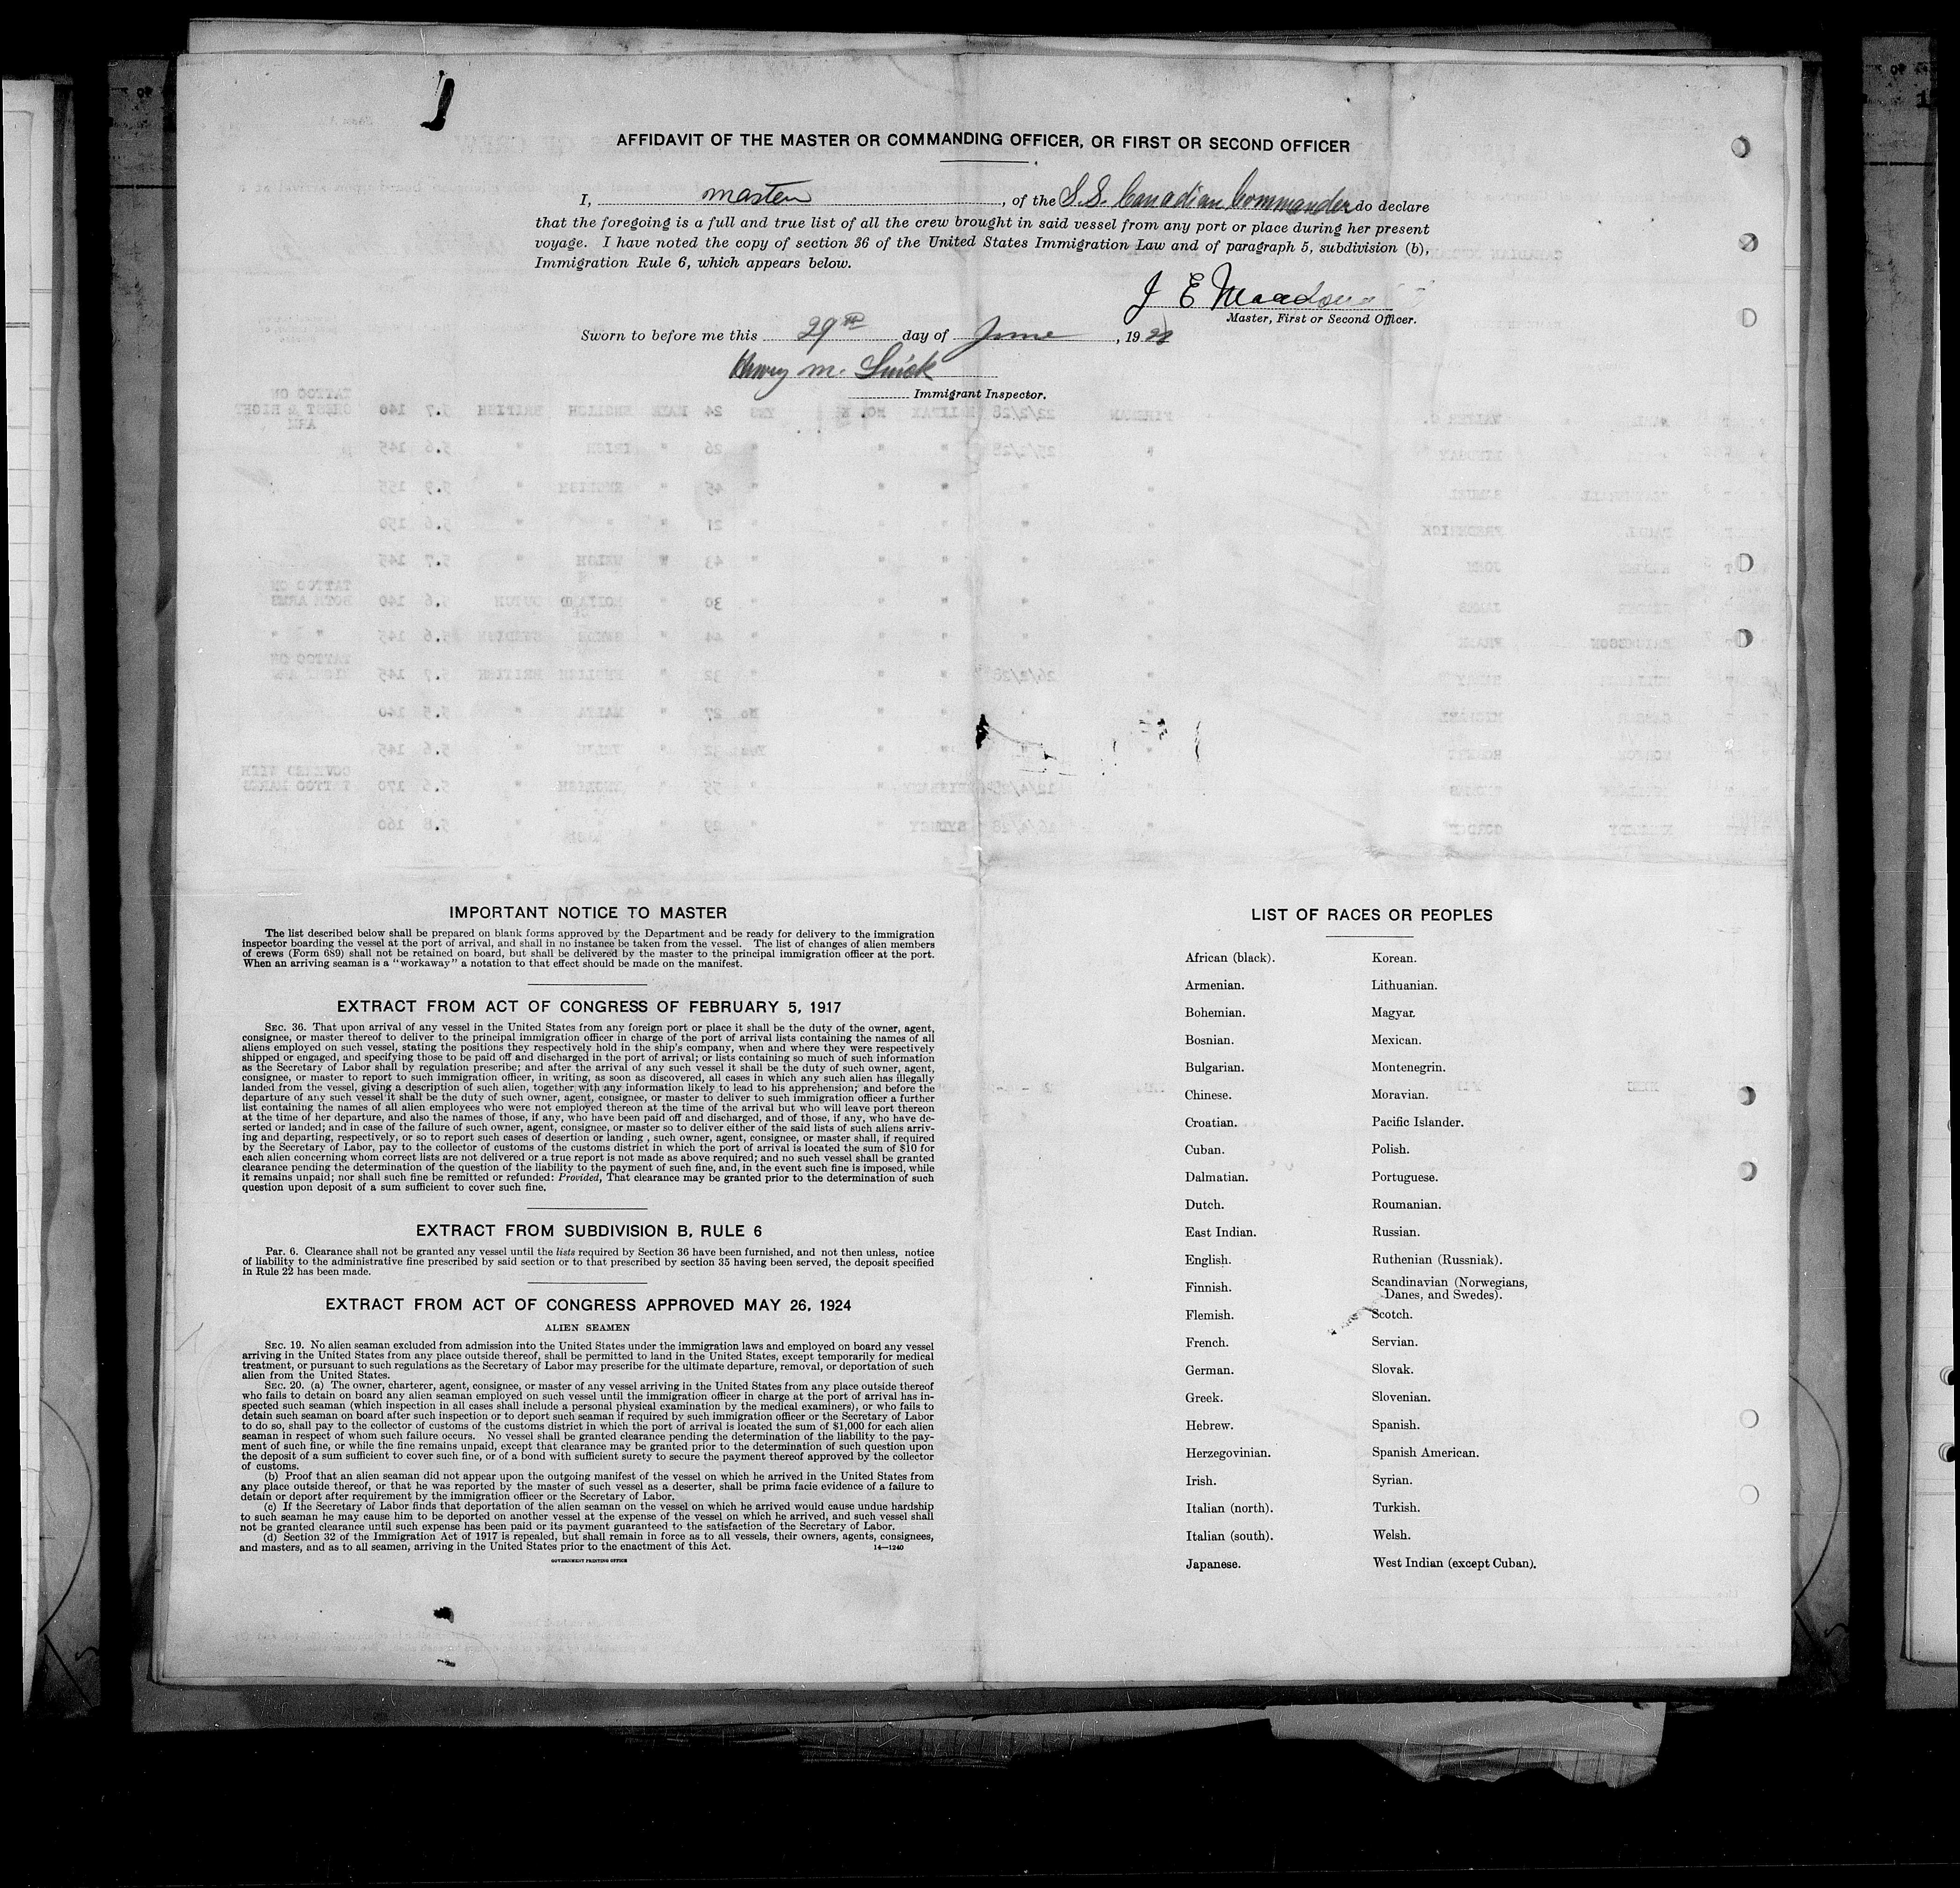 AFFIDAVIT OF THE MASTER OR COMMANDING OFFICER, OR FIRST OR SECOND OFFICER
I, master, of the S.S. Canadian Commander do declare
that the foregoing is a full and true list of all the crew brought in said vessel from any port or place during her present
voyage. I have noted the copy of section 36 of the United States Immigration Law and of paragraph 5, subdivision (b),
Immigration Rule 6, which appears below.
J E
Master, First or Second Officer.
Sworn to before me this 29th day of June, 19
m.
Immigrant Inspector.
IMPORTANT NOTICE TO MASTER
The list described below shall be prepared on blank forms approved by the Department and be ready for delivery to the immigration
inspector boarding the vessel at the port of arrival, and shall in no instance be taken from the vessel. The list of changes of alien members
of crews (Form 689) shall not be retained on board, but shall be delivered by the master to the principal immigration officer at the port.
When an arriving seaman is a "workaway" a notation to that effect should be made on the manifest.
EXTRACT FROM ACT OF CONGRESS OF FEBRUARY 5, 1917
SEC. 36. That upon arrival of any vessel in the United States from any foreign port or place it shall be the duty of the owner, agent,
consignee, or master thereof to deliver to the principal immigration officer in charge of the port of arrival lists containing the names of all
aliens employed on such vessel, stating the positions they respectively hold in the ship's company, when and where they were respectively
shipped or engaged, and specifying those to be paid off and discharged in the port of arrival; or lists containing so much of such information
as the Secretary of Labor shall by regulation prescribe; and after the arrival of any such vessel it shall be the duty of such owner, agent,
consignee, or master to report to such immigration officer, in writing, as soon as discovered, all cases in which any such alien has illegally
landed from the vessel, giving a description of such alien, together with any information likely to lead to his apprehension; and before the
departure of any such vessel it shall be the duty of such owner, agent, consignee, or master to deliver to such immigration officer a further
list containing the names of all alien employees who were not employed thereon at the time of the arrival but who will leave port thereon
at the time of her departure, and also the names of those, if any, who have been paid off and discharged, and of those, if any, who have de-
serted or landed; and in case of the failure of such owner, agent, consignee, or master so to deliver either of the said lists of such aliens arriv-
ing and departing, respectively, or so to report such cases of desertion or landing , such owner, agent, consignee, or master shall, if required
by the Secretary of Labor, pay to the collector of customs of the customs district in which the port of arrival is located the sum of $10 for
each alien concerning whom correct lists are not delivered or a true report is not made as above required; and no such vessel shall be granted
clearance pending the determination of the question of the liability to the payment of such fine, and, in the event such fine is imposed, while
it remains unpaid; nor shall such fine be remitted or refunded: Provided, That clearance may be granted prior to the determination of such
question upon deposit of a sum sufficient to cover such fine.
EXTRACT FROM SUBDIVISION B, RULE 6
Par. 6. Clearance shall not be granted any vessel until the lists required by Section 36 have been furnished, and not then unless, notice
of liability to the administrative fine prescribed by said section or to that prescribed by section 35 having been served, the deposit specified
in Rule 22 has been made.
EXTRACT FROM ACT OF CONGRESS APPROVED MAY 26, 1924
ALIEN SEAMEN
SEC. 19. No alien seaman excluded from admission into the United States under the immigration laws and employed on board any vessel
arriving in the United States from any place outside thereof, shall be permitted to land in the United States, except temporarily for medical
treatment, or pursuant to such regulations as the Secretary of Labor may prescribe for the ultimate departure, removal, or deportation of such
alien from the United States.
SEC. 20. (a) The owner, charterer, agent, consignee, or master of any vessel arriving in the United States from any place outside thereof
who fails to detain on board any alien seaman employed on such vessel until the immigration officer in charge at the port of arrival has in-
spected such seaman (which inspection in all cases shall include a personal physical examination by the medical examiners), or who fails to
detain such seaman on board after such inspection or to deport such seaman if required by such immigration officer or the Secretary of Labor
to do so, shall pay to the collector of customs of the customs district in which the port of arrival is located the sum of $1,000 for each alien
seaman in respect of whom such failure occurs. No vessel shall be granted clearance pending the determination of the liability to the pay-
ment of such fine, or while the fine remains unpaid, except that clearance may be granted prior to the determination of such question upon
the deposit of a sum sufficient to cover such fine, or of a bond with sufficient surety to secure the payment thereof approved by the collector
of customs.
(b) Proof that an alien seaman did not appear upon the outgoing manifest of the vessel on which he arrived in the United States from
any place outside thereof, or that he was reported by the master of such vessel as a deserter, shall be prima facie evidence of a failure to
detain or deport after requirement by the immigration officer or the Secretary of Labor.
(c) If the Secretary of Labor finds that deportation of the alien seaman on the vessel on which he arrived would cause undue hardship
to such seaman he may cause him to be deported on another vessel at the expense of the vessel on which he arrived, and such vessel shall
not be granted clearance until such expense has been paid or its payment guaranteed to the satisfaction of the Secretary of Labor.
(d) Section 32 of the Immigration Act of 1917 is repealed, but shall remain in force as to all vessels, their owners, agents, consignees,
and masters, and as to all seamen, arriving in the United States prior to the enactment of this Act. 14—1240
GOVERNMENT PRINTING OFFICE
LIST OF RACES OR PEOPLES
African (black). Korean.
Armenian. Lithuanian.
Bohemian. Magyar.
Bosnian. Mexican.
Bulgarian. Montenegrin.
Chinese. Moravian.
Croatian. Pacific Islander.
Cuban. Polish.
Dalmatian. Portuguese.
Dutch. Roumanian.
East Indian. Russian.
English. Ruthenian (Russniak).
Finnish. Scandinavian (Norwegians,
Danes, and Swedes).
Flemish. Scotch.
French. Servian.
German. Slovak.
Greek. Slovenian.
Hebrew. Spanish.
Herzegovinian. Spanish American.
Irish. Syrian.
Italian (north). Turkish.
Italian (south). Welsh.
Japanese. West Indian (except Cuban).